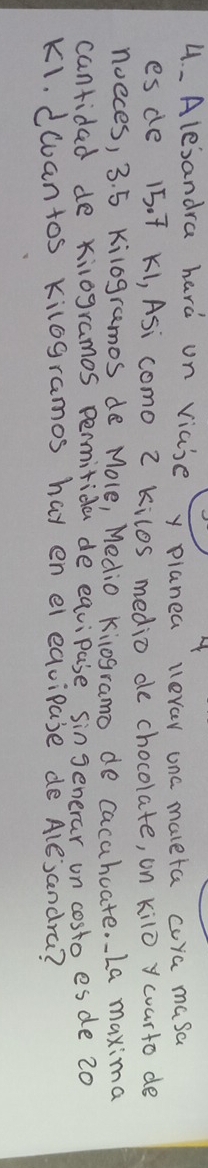 4.- Alejandra hará un viaje y planea llevar una maleta cuya masa
es de 15.7 Kl, Asi como 2 Kilos medio de chocolate, un Kilo y cuarto de
nueces, 3.5 Kilogramos de Mole, Medio Kilogramo de cacahuate.- La maxima
cantidad de Kilogramos Permitida de equipaje sin generar un costo es de 20
Kl. ¿Cuantos Kilogramos hay en el equipaje de Alejandra?